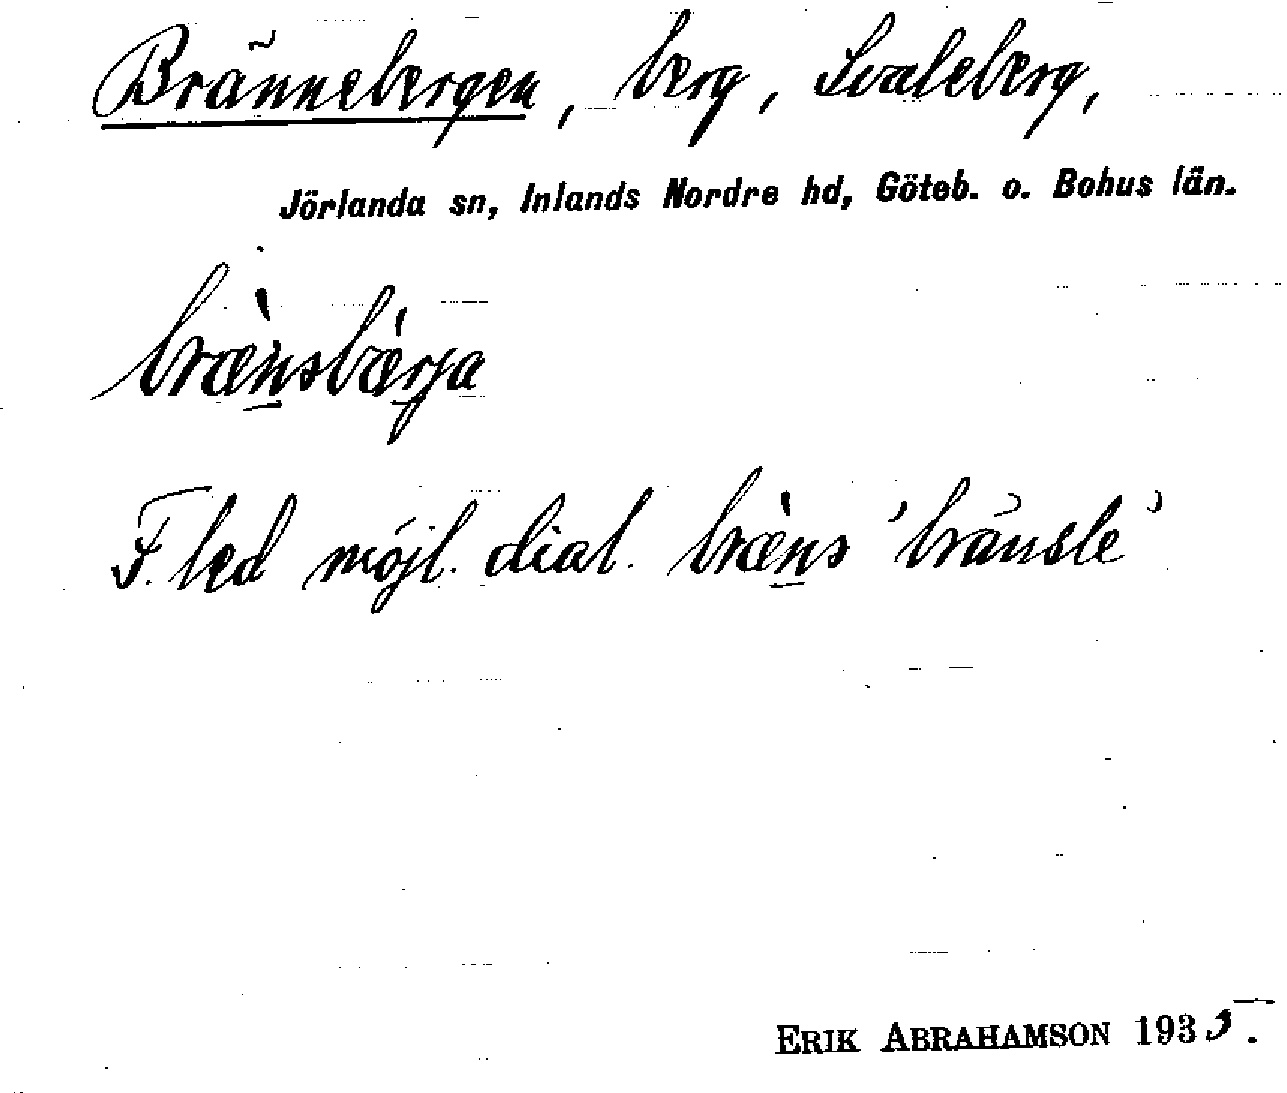 Brännebergen, berg, Svaleberg,
Jörlanda sn, Inlands Nordre hd, Göteb. o. Bohus län.
bræ̀nsbærja
F. led möjl. dial. bræ̀ns 'bränsle'
ERIK ABRAHAMSON 1935.